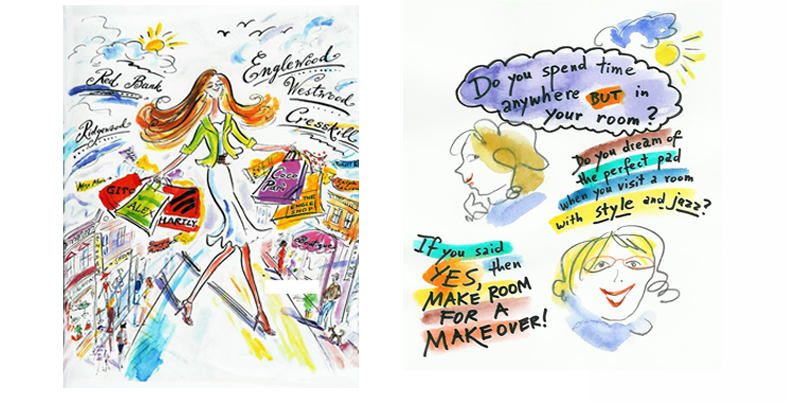 Englewood
Red Bank
Westwood
Cresskill
Ridgewood
ALEX
HARTLY
COCO
Pari
THE
ENGLE
SHOP
Boutique
Do you spend time
anywhere BUT in
your room?
Do you dream of
the perfect pad
when you visit a room
with style and jazz?
If you said
YES, then
MAKE ROOM
FOR A
MAKEOVER!